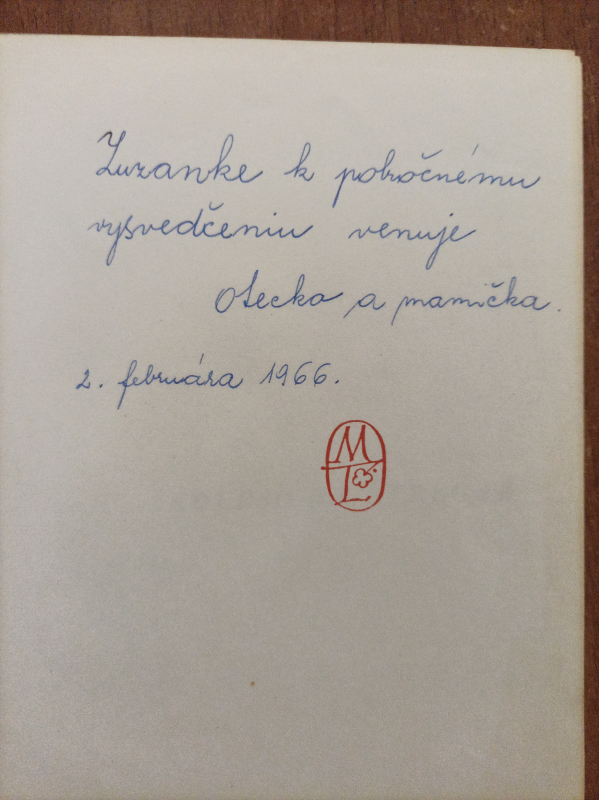 Zuzanke k polročnému
vysvedčeniu venuje
otecko a mamička.
2. februára 1966.
ML